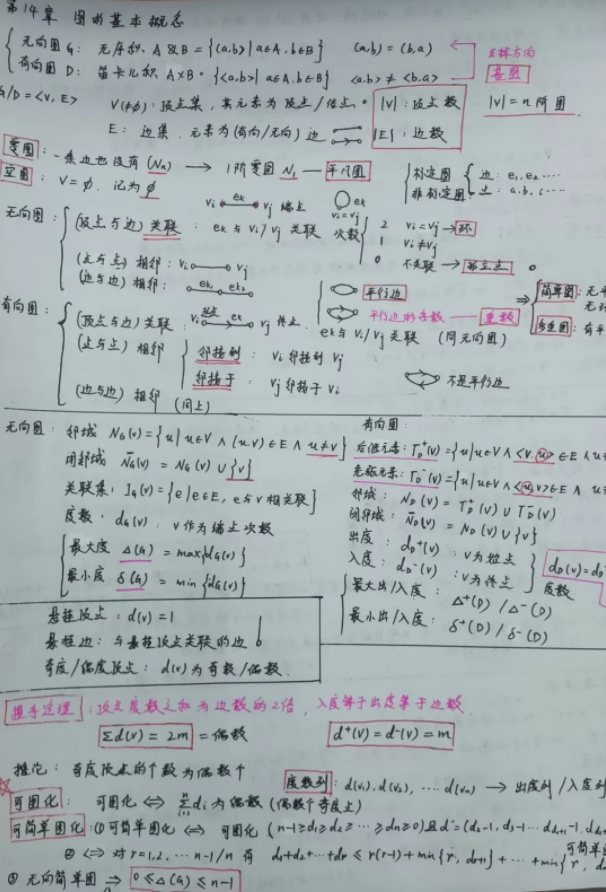 第14章 图的基本概念
无向图 G: 无序积. A & B = {(a,b) | a∈A, b∈B} (a,b) = (b,a)
有向图 D: 笛卡儿积 A×B = {<a,b> | a∈A, b∈B} <a,b> ≠ <b,a> 基图
G/D = <V, E> V(≠ϕ): 顶点集, 其元素为顶点/结点. |V|: 顶点数 |V| = n 阶图
E: 边集. 元素为(有向/无向)边 |E|: 边数
零图: 一条边也没有 (Nn) → 1阶零图 N1 — 平凡图
空图: V = ϕ. 记为 ϕ
标定图 非标定图 边: e1, e2 ····
无向图: (顶点与边) 关联: ek 与 vi/vj 关联 次数 2 vi = vj → 环
vi ek vj 端点 ek vi=vj
1 vi ≠ vj
0 不关联 → 孤立点
(点与点) 相邻: vi vj
(边与边) 相邻: ek
平行边
平行边的条数 — 重数
⇒ 简单图: 无平
多重图: 有平
有向图: (顶点与边) 关联 vi ek vj 终点. ek 与 vi/vj 关联 (同无向图)
(点与点) 相邻 邻接到: vi 邻接到 vj
邻接于: vj 邻接于 vi
不是平行边
(边与边) 相邻 (同上)
无向图: 邻域 NG(v) = {u | u∈V ∧ (u,v)∈E ∧ u≠v}
闭邻域 N̄G(v) = NG(v) ∪ {v}
关联集: IG(v) = {e | e∈E, e与v相关联}
度数: dG(v): v作为端点次数
最大度 Δ(G) = max{dG(v)}
最小度 δ(G) = min{dG(v)}
有向图:
后继元素: ΓD⁺(v) = {u | u∈V ∧ <v,u>∈E ∧ u≠
先驱元素: ΓD⁻(v) = {u | u∈V ∧ <u,v>∈E ∧ u≠
邻域: ND(v) = ΓD⁺(v) ∪ ΓD⁻(v)
闭邻域: N̄D(v) = ND(v) ∪ {v}
出度: dD⁺(v): v为始点
入度: dD⁻(v): v为终点 度数 dD(v) = dD
最大出/入度: Δ⁺(D) / Δ⁻(D)
最小出/入度: δ⁺(D) / δ⁻(D)
悬挂顶点: d(v) = 1
悬挂边: 与悬挂顶点关联的边
奇度/偶度顶点: d(v) 为奇数/偶数.
握手定理: 顶点度数之和为边数的2倍, 入度等于出度等于边数
Σd(v) = 2m = 偶数 d⁺(v) = d⁻(v) = m
推论: 奇度顶点的个数为偶数个
度数列: d(v1), d(v2), ···· d(vn) → 出度列/入度列
可图化: 可图化 ⇔ Σdi 为偶数 (偶数个奇度点)
可简单图化: ① 可简单图化 ⇔ 可图化 (n-1 ≥ d1 ≥ d2 ≥ ··· ≥ dn ≥ 0) 且 d' = (d2-1, d3-1 ··· dd1+1-1, dd1+2
可简单图
② ⇔ 对 r=1,2, ··· n-1/n 有 d1+d2+···+dr ≤ r(r-1) + min{r, dr+1} + ··· + min{r, d
③ 无向简单图 ⇒ 0 ≤ Δ(G) ≤ n-1